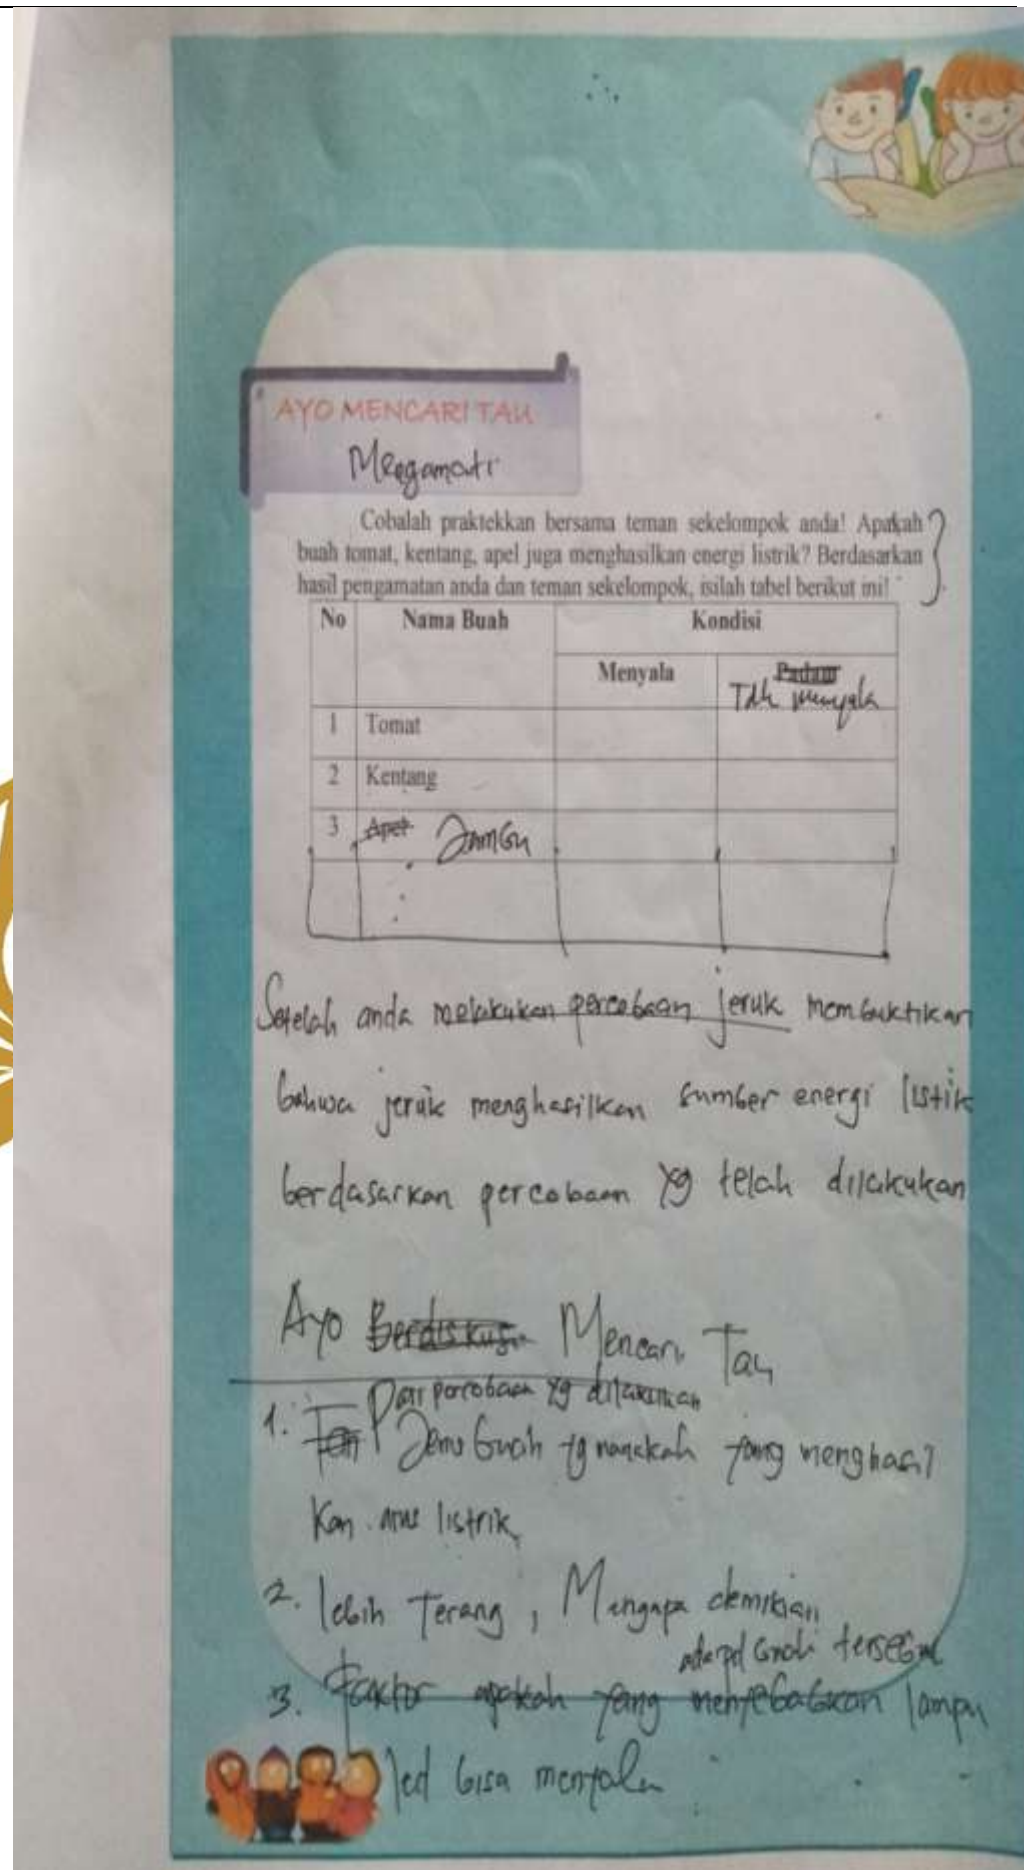 AYO MENCARI TAU
Mengamati
Cobalah praktekkan bersama teman sekelompok anda! Apakah
buah tomat, kentang, apel juga menghasilkan energi listrik? Berdasarkan
hasil pengamatan anda dan teman sekelompok, isilah tabel berikut ini!
No Nama Buah Kondisi
Menyala Padam
Tdk menyala
1 Tomat
2 Kentang
3 Apel Jambu
Setelah anda melakukan percobaan jeruk membuktikan
bahwa jeruk menghasilkan sumber energi listik
berdasarkan percobaan yg telah dilakukan
Ayo Berdiskusi Mencari Tau
Dari percobaan yg dilakukan
1. Jenis buah yg manakah yang menghasil
kan arus listrik
2. lebih Terang, Mengapa demikian
ada pd buah tersebut
3. faktor apakah yang menyebabkan lampu
led bisa menyala